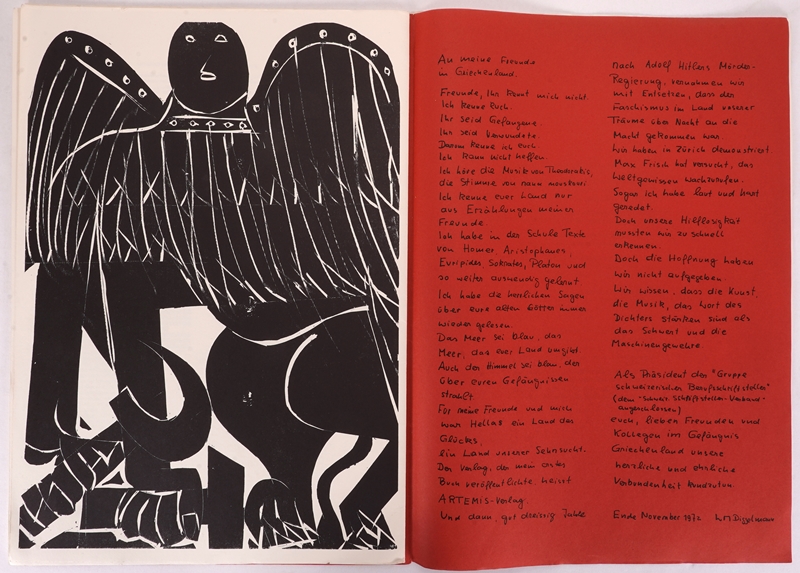 An meine Freunde
in Griechenland.
Freunde, Ihr kennt mich nicht.
Ich kenne Euch.
Ihr seid Gefangene.
Ihr seid Verwundete.
Darum kenne ich euch.
Ich kann nicht helfen.
Ich höre die Musik von Theodorakis,
die Stimme von
Ich kenne euer Land nur
aus Erzählungen meiner
Freunde.
Ich habe in der Schule Texte
von Homer, Aristophanes,
Euripides, Sokrates, Platon und
so weiter auswendig gelernt
Ich habe die herrlichen Sagen
über eure alten Götter immer
wieder gelesen.
Das Meer sei blau, das
Meer, das euer Land umgibt.
Auch der Himmel sei blau, der
über euren Gefängnissen
strahlt.
Für meine Freunde und mich
war Hellas ein Land des
Glückes,
ein Land unserer Sehnsucht.
Der Verlag, der mein erstes
Buch veröffentlichte, heisst
ARTEMIS-Verlag.
Und dann, gut dreissig Jahre
nach Adolf Hitlers Mörder-
Regierung, vernahmen wir
mit Entsetzen, dass der
Faschismus im Land unserer
Träume über Nacht an die
Macht gekommen war
Wir haben in Zürich demonstriert.
Max Frisch hat versucht, das
Weltgewissen wachzurufen.
Sogar ich habe laut und hart
geredet.
Doch unsere Hilflosigkeit
mussten wir zu schnell
erkennen.
Doch die Hoffnung haben
wir nicht aufgegeben.
Wir wissen, dass die Kunst,
die Musik, das Wort des
Dichters stärker sind als
das Schwert und die
Maschinengewehre.
Als Präsident der "Gruppe
schweizerischer Berufsschriftsteller"
(dem Schweiz. Schriftsteller-Verband
angeschlossen)
euch, lieben Freunden und
Kollegen im Gefängnis
Griechenland unsere
herzliche und ehrliche
Verbundenheit kundzutun.
Ende November 1972 W M Diggelmann